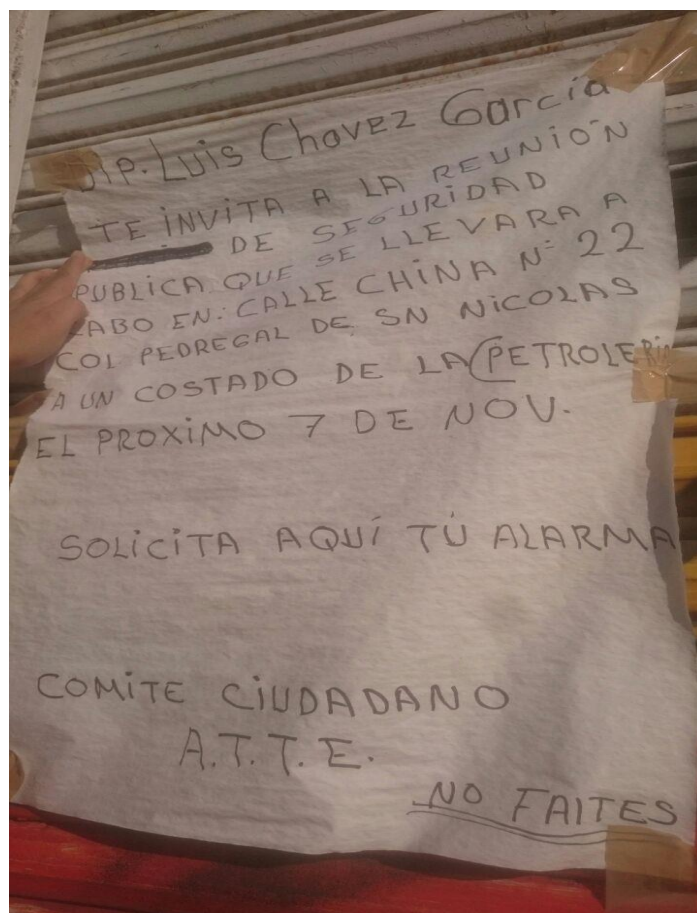 Dip. Luis Chavez García
TE iNViTA A LA REUNIÓN
DE SEGURIDAD
PUBLICA QUE SE LLEVARA A
CABO EN: CALLE CHINA Nº 22
COL PEDREGAL DE SN NICOLAS
A UN COSTADO DE LA PETROLERIA
EL PROXIMO 7 DE NOV.
SOLICITA AQUÍ TÚ ALARMA
COMITE CIUDADANO
A.T.T.E.
NO FALTES